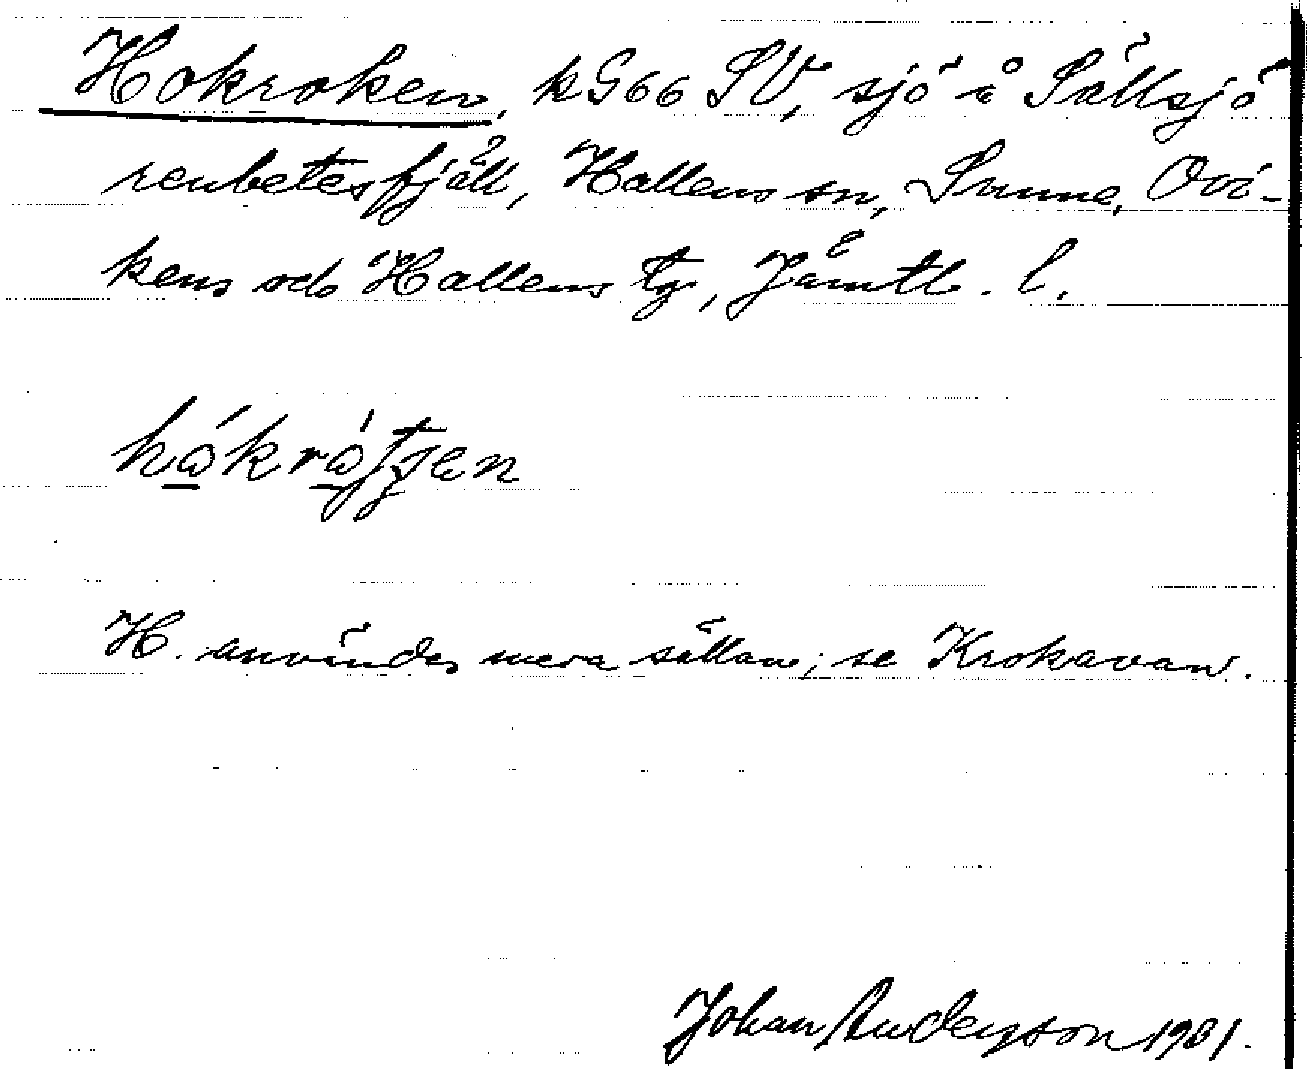 Hokroken, kG66 SV, sjö å Sällsjö
renbetesfjäll, Hallens sn, Sunne, Ovi-
kens och Hallens tg, Jämtl. l.
H. användes mera sällan; se Krokavan.
Johan Anderson 1931.